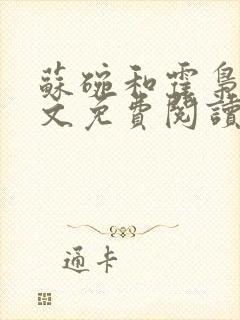 蘇碗和霆梟
文免費閱讀
通卡